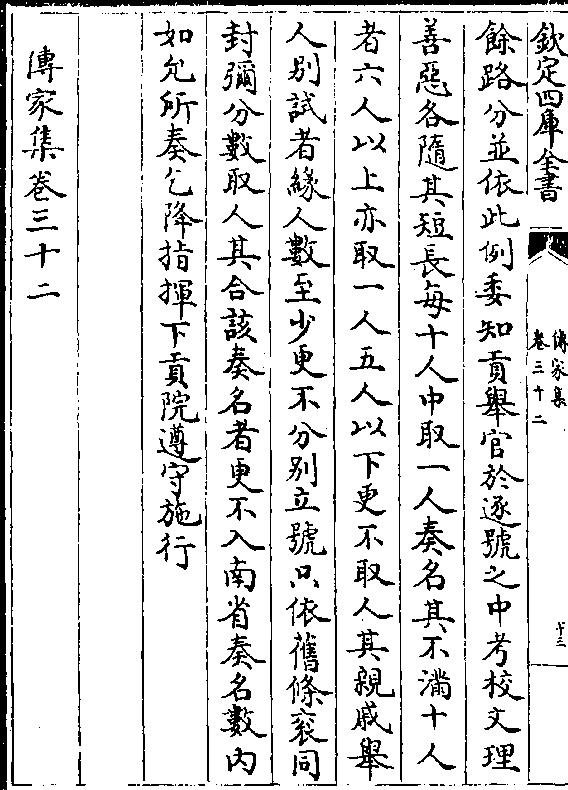 欽定四庫全書
傳家集
卷三十二
十三
餘路分並依此例委知貢舉官於逐號之中考校文理
善惡各隨其短長每十人中取一人奏名其不滿十人
者六人以上亦取一人五人以下更不取人其親戚舉
人别試者緣人數至少更不分别立號只依舊條衮同
封彌分數取人其合該奏名者更不入南省奏名數内
如允所奏乞降指揮下貢院遵守施行
傳家集卷三十二